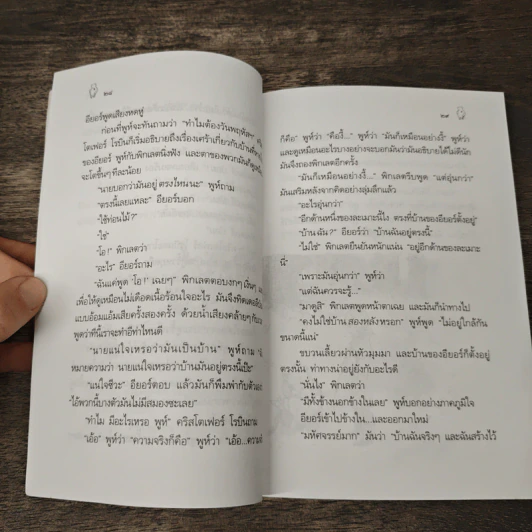 ๒๘
อียอร์พูดเสียงหดหู่
ก่อนที่พูห์จะทันถามว่า "ทำไมต้องวันพฤหัสฯ"
โตเฟอร์ โรบินก็เริ่มอธิบายถึงเรื่องเศร้าเกี่ยวกับบ้านที่
ของอียอร์ พูห์กับพิกเลตนิ่งฟัง และตาของพวกมันก็ดู
จะโตขึ้นๆ ทีละน้อย
"นายบอกว่ามันอยู่ตรงไหนนะ" พูห์ถาม
"ตรงนี้เลยแหละ" อียอร์บอก
"ใช้ท่อนไม้?"
"ใช่"
"โอ๊!" พิกเลตว่า
"อะไร" อียอร์ถาม
"ฉันแค่พูด 'โอ๊!' เฉยๆ" พิกเลตตอบงกๆ เงิ่นๆ
เพื่อให้ดูเหมือนไม่เดือดเนื้อร้อนใจอะไร มันจึงทิดเดอลี
แบบอ้อมแอ้มเสียครั้งสองครั้ง ด้วยน้ำเสียงคล้ายๆ
พูดว่าทีนี้เราจะทำอีท่าไหนดี
"นายแน่ใจเหรอว่ามันเป็นบ้าน" พูห์ถาม
หมายความว่า นายแน่ใจเหรอว่าบ้านมันอยู่ตรงนี้เป๊ะ"
"แน่ใจซีวะ" อียอร์ตอบ แล้วมันก็พึมพำกับตัวเอง
"ไอ้พวกนี้บางตัวมันไม่มีสมองซะเลย"
"ทำไม มีอะไรเหรอ พูห์" คริสโตเฟอร์ โรบินถาม
"เอ้อ" พูห์ว่า "ความจริงก็คือ" พูห์ว่า "เอ้อ...ความ
๒๙
ก็คือ" พูห์ว่า "คืองี้..." พูห์ว่า "มันก็เหมือนอย่างงี้" พูห์ว่า
และดูเหมือนอะไรบางอย่างจะบอกมันว่ามันอธิบายได้ไม่ดีนัก
มันจึงถองพิกเลตอีกครั้ง
"มันก็เหมือนอย่างงี้..." พิกเลตรีบพูด "แต่อุ่นกว่า"
มันเสริมหลังจากคิดอย่างลุ่มลึกแล้ว
"อะไรอุ่นกว่า"
"อีกด้านหนึ่งของละเมาะนี้ไง ตรงที่บ้านของอียอร์ตั้งอยู่"
"บ้านฉัน?" อียอร์ว่า "บ้านฉันอยู่ตรงนี้"
"ไม่ใช่" พิกเลตยืนยันหนักแน่น "อยู่อีกด้านของละเมาะ
นี่"
"เพราะมันอุ่นกว่า" พูห์ว่า
"แต่ฉันควรจะรู้..."
"มาดูสิ" พิกเลตพูดหน้าตาเฉย และมันก็นำทางไป
"คงไม่ใช่บ้านสองหลังหรอก" พูห์พูด "ไม่อยู่ใกล้กัน
ขนาดนี้แน่"
ขบวนเลี้ยวผ่านหัวมุมมา และบ้านของอียอร์ก็ตั้งอยู่
ตรงนั้น ท่าทางน่าอยู่ยังกับอะไรดี
"นั่นไง" พิกเลตว่า
"มีทั้งข้างนอกข้างในเลย" พูห์บอกอย่างภาคภูมิใจ
อียอร์เข้าไปข้างใน...และออกมาใหม่
"มหัศจรรย์มาก" มันว่า "บ้านฉันจริงๆ และฉันสร้างไว้